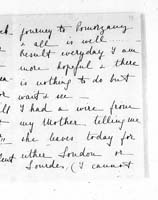 journey to
& all is well
result everyday I am
more hopeful & there
is nothing to do but
wait & see —
I had a wire from
my Mother telling me
she leaves today for
either London or
Lourdes. (I cannot